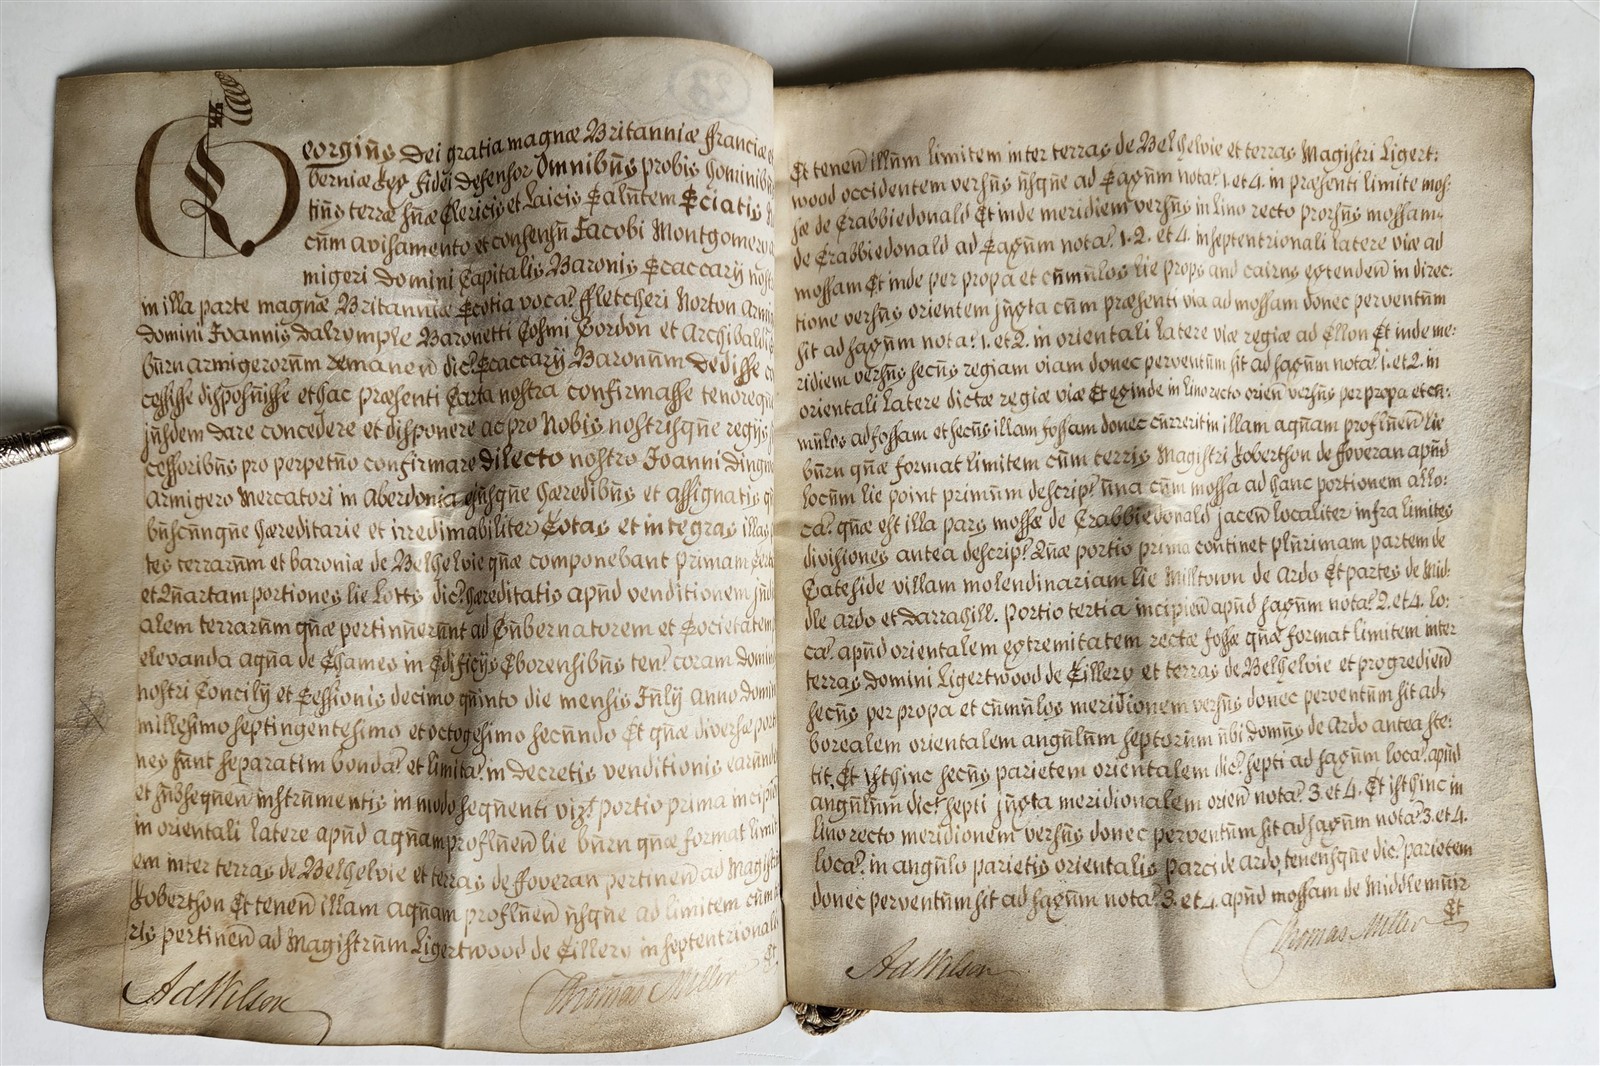 23
Georgius Dei gratia magnæ Britanniæ Franciæ et
berniæ Rex fidei defensor Omnibus probis hominib
tius terræ suæ Clericis et Laicis Salutem Sciatis N
cum avisamento et consensu Jacobi Montgomery a
migeri Domini Capitalis Baronis Scaccarij nost
in illa parte magnæ Britanniæ Scotia voca: ffletcheri Norton Armig
Domini Joannis Dalrymple Baronetti Cosmi Gordon et Archibaldi
burn armigerorum remaneñ dic: Scaccarij Baronum Dedisse c
cessisse disposuisse et hac præsenti Carta nostra confirmasse tenoreque
jusdem dare concedere et disponere ac pro Nobis nostrisque regijs
cessoribus pro perpetuo confirmare dilecto nostro Joanni Dingwa
Armigero Mercatori in Aberdonia ejusque hæredibus et assignatis q
buscunque hæreditarie et irredimabiliter Totas et integras illas p
tes terrarum et baroniæ de Belhelvie quæ componebant primam Terti
et Quartam portiones lie Lotts dic: hæreditatis apud venditionem judi
alem terrarum quæ pertinuerunt ad Gubernatorem et Societatem
elevanda aqua de Thames in Edificijs Eborensibus ten: coram Domin
nostri Concilij et Sessionis decimo quinto die mensis Julij anno Domin
millesimo septingentesimo et octogesimo secundo Et quæ diversæ port
nes sunt separatim bonda: et limita: in decretis venditionis earunde
et subsequeñ instrumentis in modo sequenti vizt portio prima incipieñ
in orientali latere apud aquam profluen̄ lie burn quæ format limit
em inter terras de Belhelvie et terras de ffoveran pertineñ ad Magistr
Robertson Et teneñ illam aquam proflueñ usque ad limitem cum ter
ris pertineñ ad Magistrum Ligertwood de Tillery in septentrionali
Et
Ad Wilson Thomas Miller
Et teneñ illum limitem inter terras de Belhelvie et terras Magistri Ligert:
wood occidentem versus usque ad Saxum nota: 1. et 4. in præsenti limite mos:
sæ de Crabbiedonald Et inde meridiem versus in lino recto prorsus mossam
de Crabbiedonald ad Saxum nota: 1. 2. et 4. in septentrionali latere viæ ad
mossam Et inde per propa et cumulos lie props and cairns extendeñ in direc:
tione versus orientem juxta cum præsenti via ad mossam donec perventum
sit ad saxum nota: 1. et 2. in orientali latere viæ regiæ ad Ellon Et inde me:
ridiem versus secus regiam viam donec perventum sit ad saxum nota: 1. et 2. in
orientali latere dictæ regiæ viæ Et exinde in lino recto orieñ versus per propa et cu:
mulos ad fossam et secus illam fossam donec curreret in illam aquam proflueñ lie
burn quæ format limitem cum terris Magistri Robertson de ffoveran apud
locum lie point primum descrip: una cum mossa ad hanc portionem allo:
ca: quæ est illa pars mossæ de Crabbiedonald jaceñ localiter infra limites
divisiones antea descrip: Quæ portio prima continet plurimam partem de
Gateside villam molendinariam lie Milltown de Ardo Et partes de Mid:
dle Ardo et Darrahill. Portio tertia incipieñ apud saxum nota: 2. et 4. lo:
ca: apud orientalem extremitatem rectæ fossæ quæ format limitem inter
terras Domini Ligertwood de Tillery et terras de Belhelvie et progredieñ
secus per propa et cumulos meridionem versus donec perventum sit ad
borealem orientalem angulum septorum ubi domus de Ardo antea ste:
tit, Et isthinc secus parietem orientalem dic: septi ad saxum loca: apud
angulum dict septi juxta meridionalem orieñ nota: 3. et 4. Et isthinc in
lino recto meridionem versus donec perventum sit ad saxum nota: 3. et 4.
loca: in angulo parietis orientalis parci de Ardo, tenensque dic: parietem
donec perventum sit ad saxum nota: 3. et 4. apud mossam de Middlemuir
Et
Ad Wilson Thomas Miller